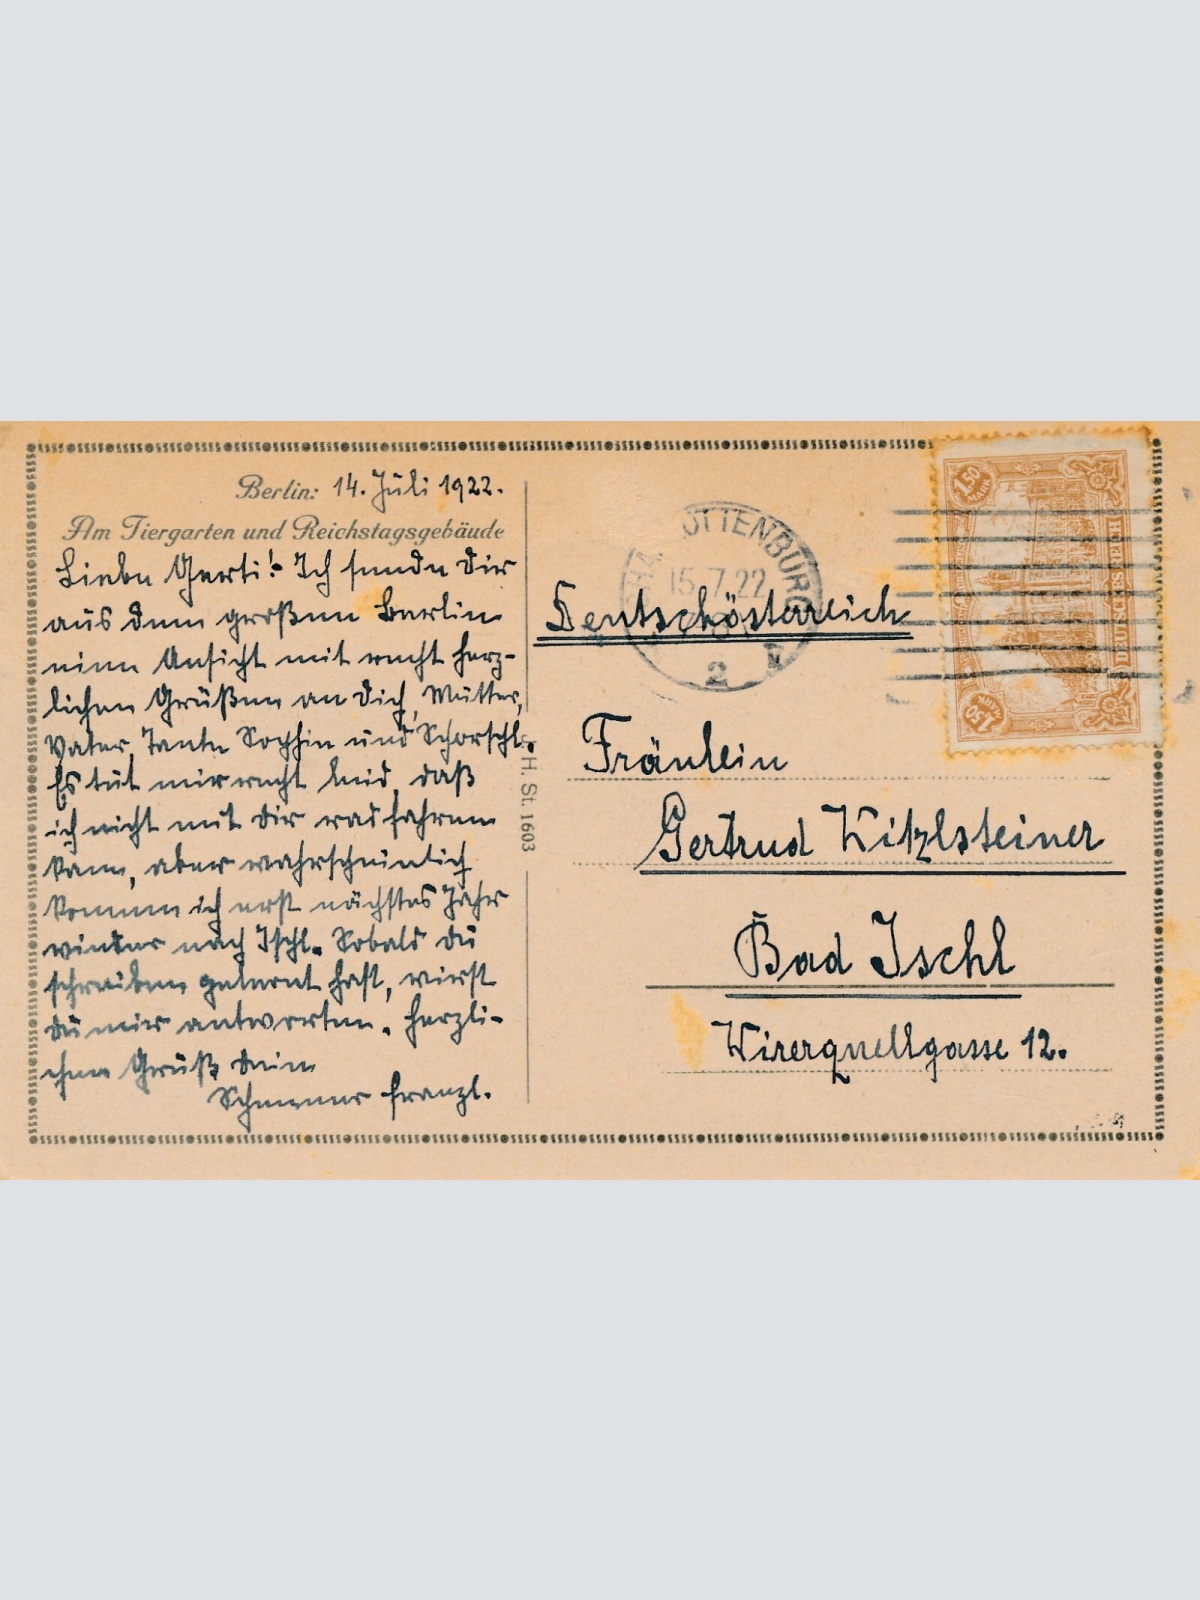 Berlin: 14. Juli 1922.
Am Tiergarten und Reichstagsgebäude
Liebe Gerti! Ich sende Dir
aus dem großen Berlin
eine Ansicht mit recht herz-
lichen Grüßen an Dich, Mutter,
Vater, Tante Sophie und Schorschl.
Es tut mir recht leid, daß
ich nicht mit Dir radfahren
kann, aber wahrscheinlich
komme ich erst nächstes Jahr
wieder nach Ischl. Sobald Du
schreiben gelernt hast, wirst
Du mir antworten. Herzli-
chen Gruß Dein
Franzl.
H. St. 1603
OTTENBURG
15.7.22
2
1,50
MARK
DEUTSCHES REICH
1,50
MARK
Deutschösterreich
Fräulein
Gertrud Kitzlsteiner
Bad Ischl
Wirerquellgasse 12.